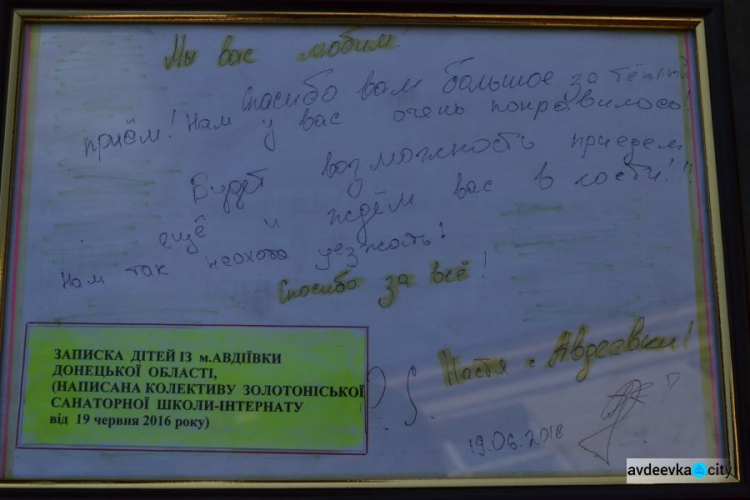 Мы вас любим!
Спасибо вам большое за тёплый
приём! Нам у вас очень понравилось!
Будет возможность приедем
ещё и ждём вас в гости!!!
Нам так неохота уезжать!
Спасибо за всё!
P.S. Настя с Авдеевки!
19.06.2018
ЗАПИСКА ДІТЕЙ ІЗ м.АВДІЇВКИ
ДОНЕЦЬКОЇ ОБЛАСТІ,
(НАПИСАНА КОЛЕКТИВУ ЗОЛОТОНІСЬКОЇ
САНАТОРНОЇ ШКОЛИ-ІНТЕРНАТУ
від 19 червня 2016 року)
avdeevka.city